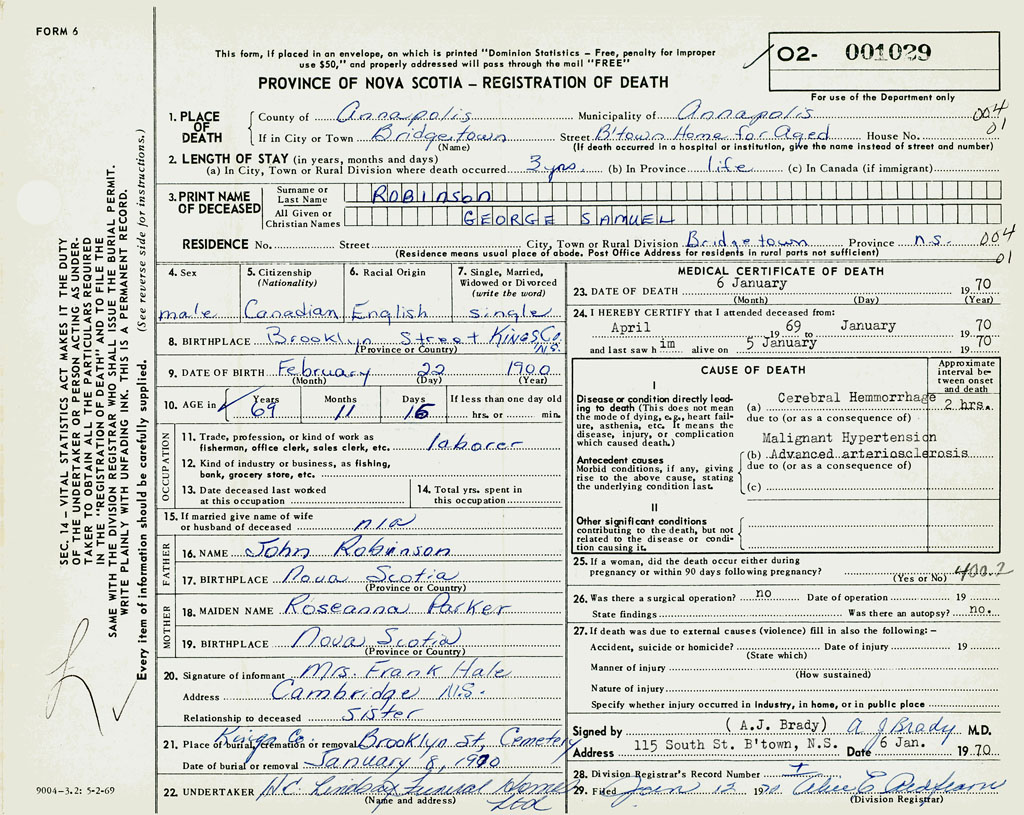 FORM 6
This form, if placed in an envelope, on which is printed "Dominion Statistics – Free, penalty for improper
use $50," and properly addressed will pass through the mail "FREE"
PROVINCE OF NOVA SCOTIA – REGISTRATION OF DEATH
O2- 001029
For use of the Department only
1. PLACE OF DEATH
County of Annapolis Municipality of Annapolis 004
If in City or Town Bridgetown Street B'town Home for Aged House No. 01
(Name) (If death occurred in a hospital or institution, give the name instead of street and number)
2. LENGTH OF STAY (in years, months and days)
(a) In City, Town or Rural Division where death occurred 3 yrs. (b) In Province life (c) In Canada (if immigrant)
3. PRINT NAME OF DECEASED
Surname or Last Name ROBINSON
All Given or Christian Names GEORGE SAMUEL
RESIDENCE No. Street City, Town or Rural Division Bridgetown Province n.s. 004
(Residence means usual place of abode. Post Office Address for residents in rural parts not sufficient) 01
4. Sex
male
5. Citizenship
(Nationality)
Canadian
6. Racial Origin
English
7. Single, Married,
Widowed or Divorced
(write the word)
single
8. BIRTHPLACE Brooklyn Street Kings Co. N.S.
(Province or Country)
9. DATE OF BIRTH February 22 1900
(Month) (Day) (Year)
10. AGE in Years 69 Months 11 Days 15 If less than one day old
hrs. or min.
OCCUPATION
11. Trade, profession, or kind of work as
fisherman, office clerk, sales clerk, etc. laborer
12. Kind of industry or business, as fishing,
bank, grocery store, etc.
13. Date deceased last worked
at this occupation
14. Total yrs. spent in
this occupation
15. If married give name of wife
or husband of deceased n/a
FATHER
16. NAME John Robinson
17. BIRTHPLACE Nova Scotia
(Province or Country)
MOTHER
18. MAIDEN NAME Roseanna Parker
19. BIRTHPLACE Nova Scotia
(Province or Country)
20. Signature of informant Mrs. Frank Hale
Address Cambridge N.S.
Relationship to deceased sister
21. Place of burial, cremation or removal Kings Co. Brooklyn St, Cemetery
Date of burial or removal January 8, 1970
22. UNDERTAKER H.C. Lindsay Funeral Homes Ltd
(Name and address)
MEDICAL CERTIFICATE OF DEATH
23. DATE OF DEATH 6 January 1970
(Month) (Day) (Year)
24. I HEREBY CERTIFY that I attended deceased from:
April 1969 to January 1970
and last saw him alive on 5 January 1970
CAUSE OF DEATH
Approximate
interval be-
tween onset
and death
I
Disease or condition directly lead-
ing to death (This does not mean
the mode of dying, e.g., heart fail-
ure, asthenia, etc. It means the
disease, injury, or complication
which caused death.)
(a) Cerebral Hemmorrhage 2 hrs.
due to (or as a consequence of)
Malignant Hypertension
Antecedent causes
Morbid conditions, if any, giving
rise to the above cause, stating
the underlying condition last.
(b) Advanced arteriosclerosis
due to (or as a consequence of)
(c)
II
Other significant conditions
contributing to the death, but not
related to the disease or condi-
tion causing it.
25. If a woman, did the death occur either during
pregnancy or within 90 days following pregnancy?
(Yes or No) 400.2
26. Was there a surgical operation? no Date of operation 19
State findings Was there an autopsy? no.
27. If death was due to external causes (violence) fill in also the following: –
Accident, suicide or homicide? Date of injury 19
(State which)
Manner of injury
(How sustained)
Nature of injury
Specify whether injury occurred in industry, in home, or in public place
Signed by (A.J. Brady) A J Brady M.D.
Address 115 South St. B'town, N.S. Date 6 Jan. 1970
28. Division Registrar's Record Number
29. Filed Jan 12 1970
(Division Registrar)
SEC. 14 – VITAL STATISTICS ACT MAKES IT THE DUTY
OF THE UNDERTAKER OR PERSON ACTING AS UNDER-
TAKER TO OBTAIN ALL THE PARTICULARS REQUIRED
IN THE "REGISTRATION OF DEATH" AND TO FILE THE
SAME WITH THE DIVISION REGISTRAR WHO SHALL ISSUE THE BURIAL PERMIT.
WRITE PLAINLY WITH UNFADING INK. THIS IS A PERMANENT RECORD.
Every item of information should be carefully supplied. (See reverse side for instructions.)
9004-3.2: 5-2-69